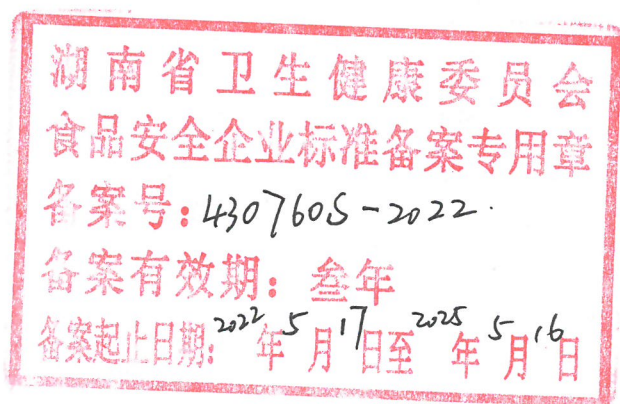 湖南省卫生健康委员会
食品安全企业标准备案专用章
备案号:4307605-2022.
备案有效期:叁年
备案起止日期:2022年5月17日至2025年5月16日